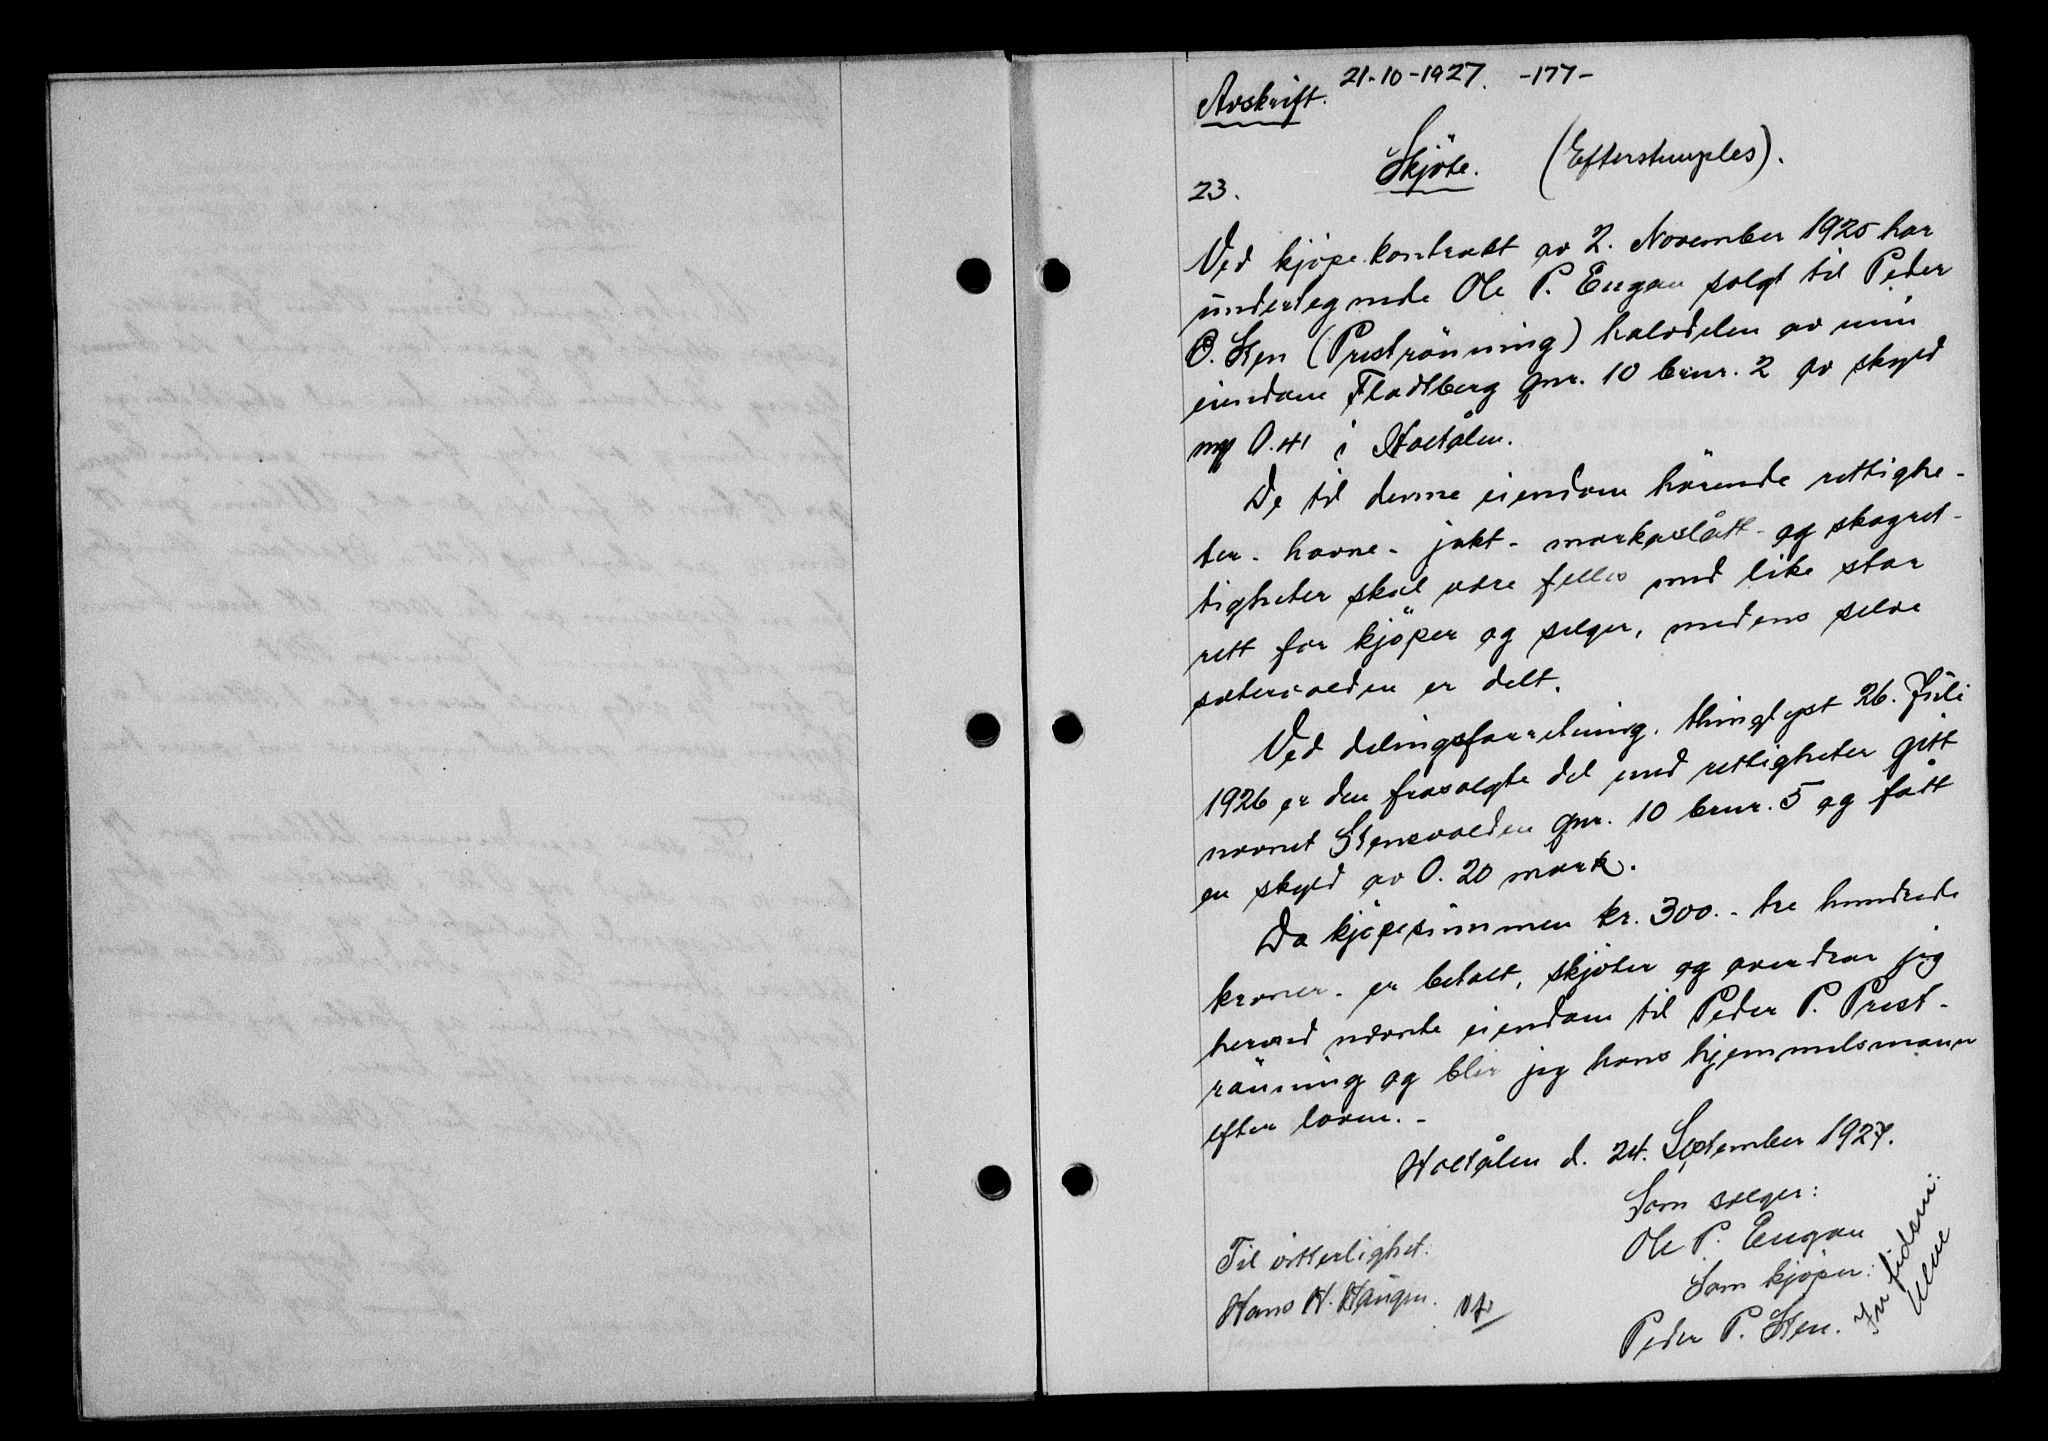 21-10-1927. -177-
Avskrift.
Skjöte. (Efterstemples).
23.
Ved kjöpekontrakt av 2. November 1925 har
undertegnede Ole P. Engan solgt til Peder
O. Sten (Preströnning) halvdelen av min
eiendom Flodtberg gnr. 10 brnr. 2 av skyld
my 0.41 i Holtålen.
De til denne eiendom hörende rettighe-
ter - havne - jakt - markaslått - og skogret-
tigheter skal være felles med like stor
rett for kjöper og selger, medens selve
setervolden er delt.
Ved delingsforretning, thinglyst 26. Juli
1926 er den frasolgte del med rettigheter gitt
navnet Stensvolden gnr. 10 brnr. 5 og fått
en skyld av 0.20 mark.
Da kjöpesummen kr. 300.- tre hundrede
kroner - er betalt, skjöter og overdrar jeg
herved nævnte eiendom til Peder P. Prest-
rönning og blir jeg hans hjemmelsmann
efter loven. -
Holtålen d. 24. September 1927.
Som selger:
Ole P. Engan
Til vitterlighet:
Som kjöper:
Hans H. Haugen.
Peder P. Sten.
In fidem: